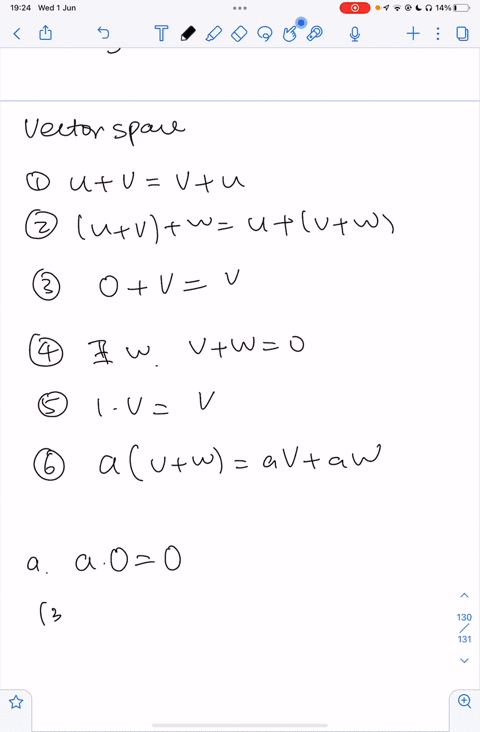 19:24 Wed 1 Jun
14%
Vector space
① u+v = v+u
② (u+v)+w = u+(v+w)
③ 0+v = v
④ ∃ w. v+w=0
⑤ 1·v = v
⑥ a(v+w) = av+aw
a. a·0=0
(3
130
/
131